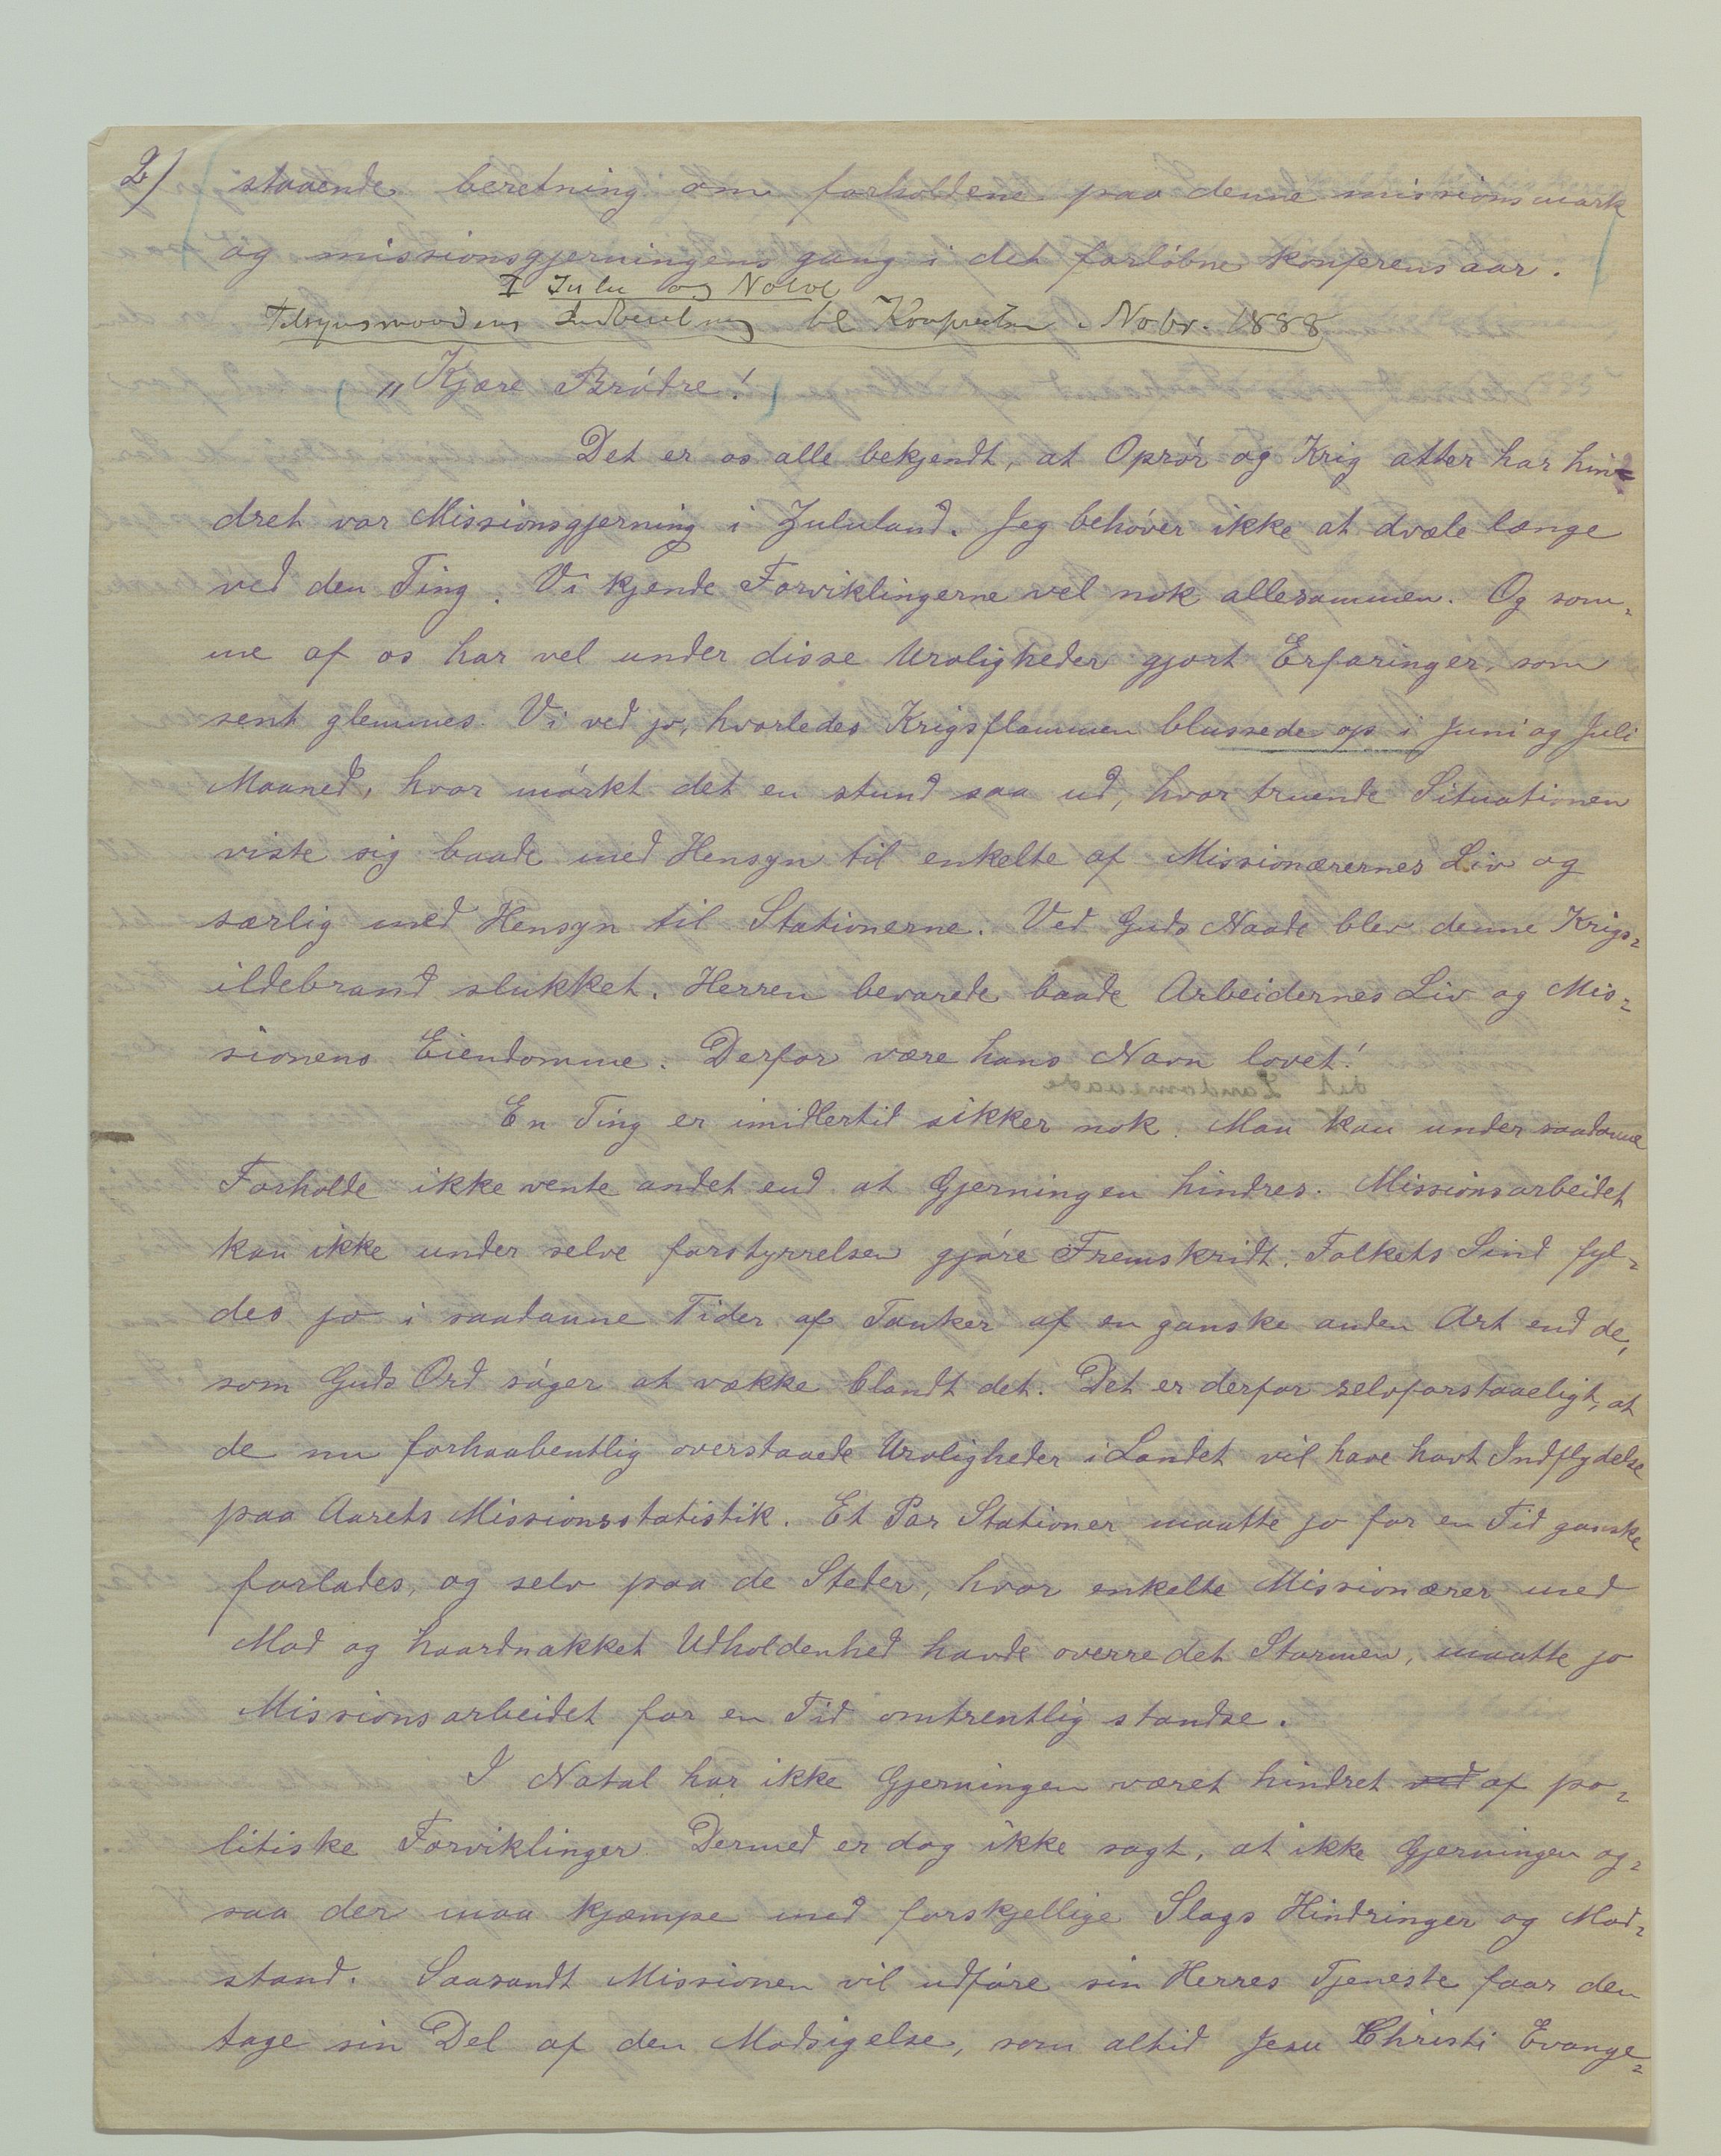 2/ staaende beretning om forholdene paa denne missionsmark
og missionsgjerningens gang i det forløbne konferensaar.
I Zulu og Natal
Tilsynsmandens Indberetning til Konferentsen i Novbr. 1888
„Kjære Brødre!
Det er os alle bekjendt, at Oprør og Krig atter har hin-
dret vor Missionsgjerning i Zululand. Jeg behøver ikke at dvæle længe
ved den Ting. Vi kjende Forviklingerne vel nok allesammen. Og som-
me af os har vel under disse Uroligheder gjort Erfaringer, som
sent glemmes. Vi ved jo, hvorledes Krigsflammen blussede op i Juni og Juli
Maaned, hvor mørkt det en stund saa ud, hvor truende Situationen
viste sig baade med Hensyn til enkelte af Missionærernes Liv og
særlig med Hensyn til Stationerne. Ved Guds Naade blev denne Krigs-
ildebrand slukket. Herren bevarede baade Arbeidernes Liv og Mis-
sionens Eiendomme. Derfor være hans Navn lovet!
En Ting er imidlertid sikker nok. Man kan under saadanne
Forholde ikke vente andet end at Gjerningen hindres. Missionsarbeidet
kan ikke under selve forstyrrelsen gjøre Fremskridt. Folkets Sind fyl-
des jo i saadanne Tider af Tanker af en ganske anden Art end de,
som Guds Ord søger at vække blandt det. Det er derfor selvforstaaeligt, at
de nu forhaabentlig overstaaede Uroligheder i Landet vil have havt Indflydelse
paa Aarets Missionsstatistik. Et Par Stationer maatte jo for en Tid ganske
forlades, og selv paa de Steder, hvor enkelte Missionærer med
Mod og haardnakket Udholdenhed havde overredet Stormen, maatte jo
Missionsarbeidet for en Tid omtrentlig standse.
I Natal har ikke Gjerningen været hindret ved af po-
litiske Forviklinger. Dermed er dog ikke sagt, at ikke Gjerningen og-
saa der maa kjæmpe med forskjellige Slags Hindringer og Mod-
stand. Saasandt Missionen vil udføre sin Herres Tjeneste faar den
tage sin Del af den Modsigelse, som altid Jesu Christi Evange-